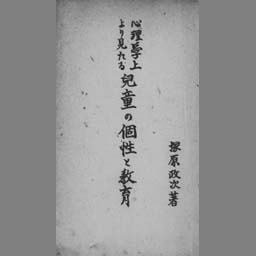 心理學上
より見たる
兒童の個性と教育
塚原政次著